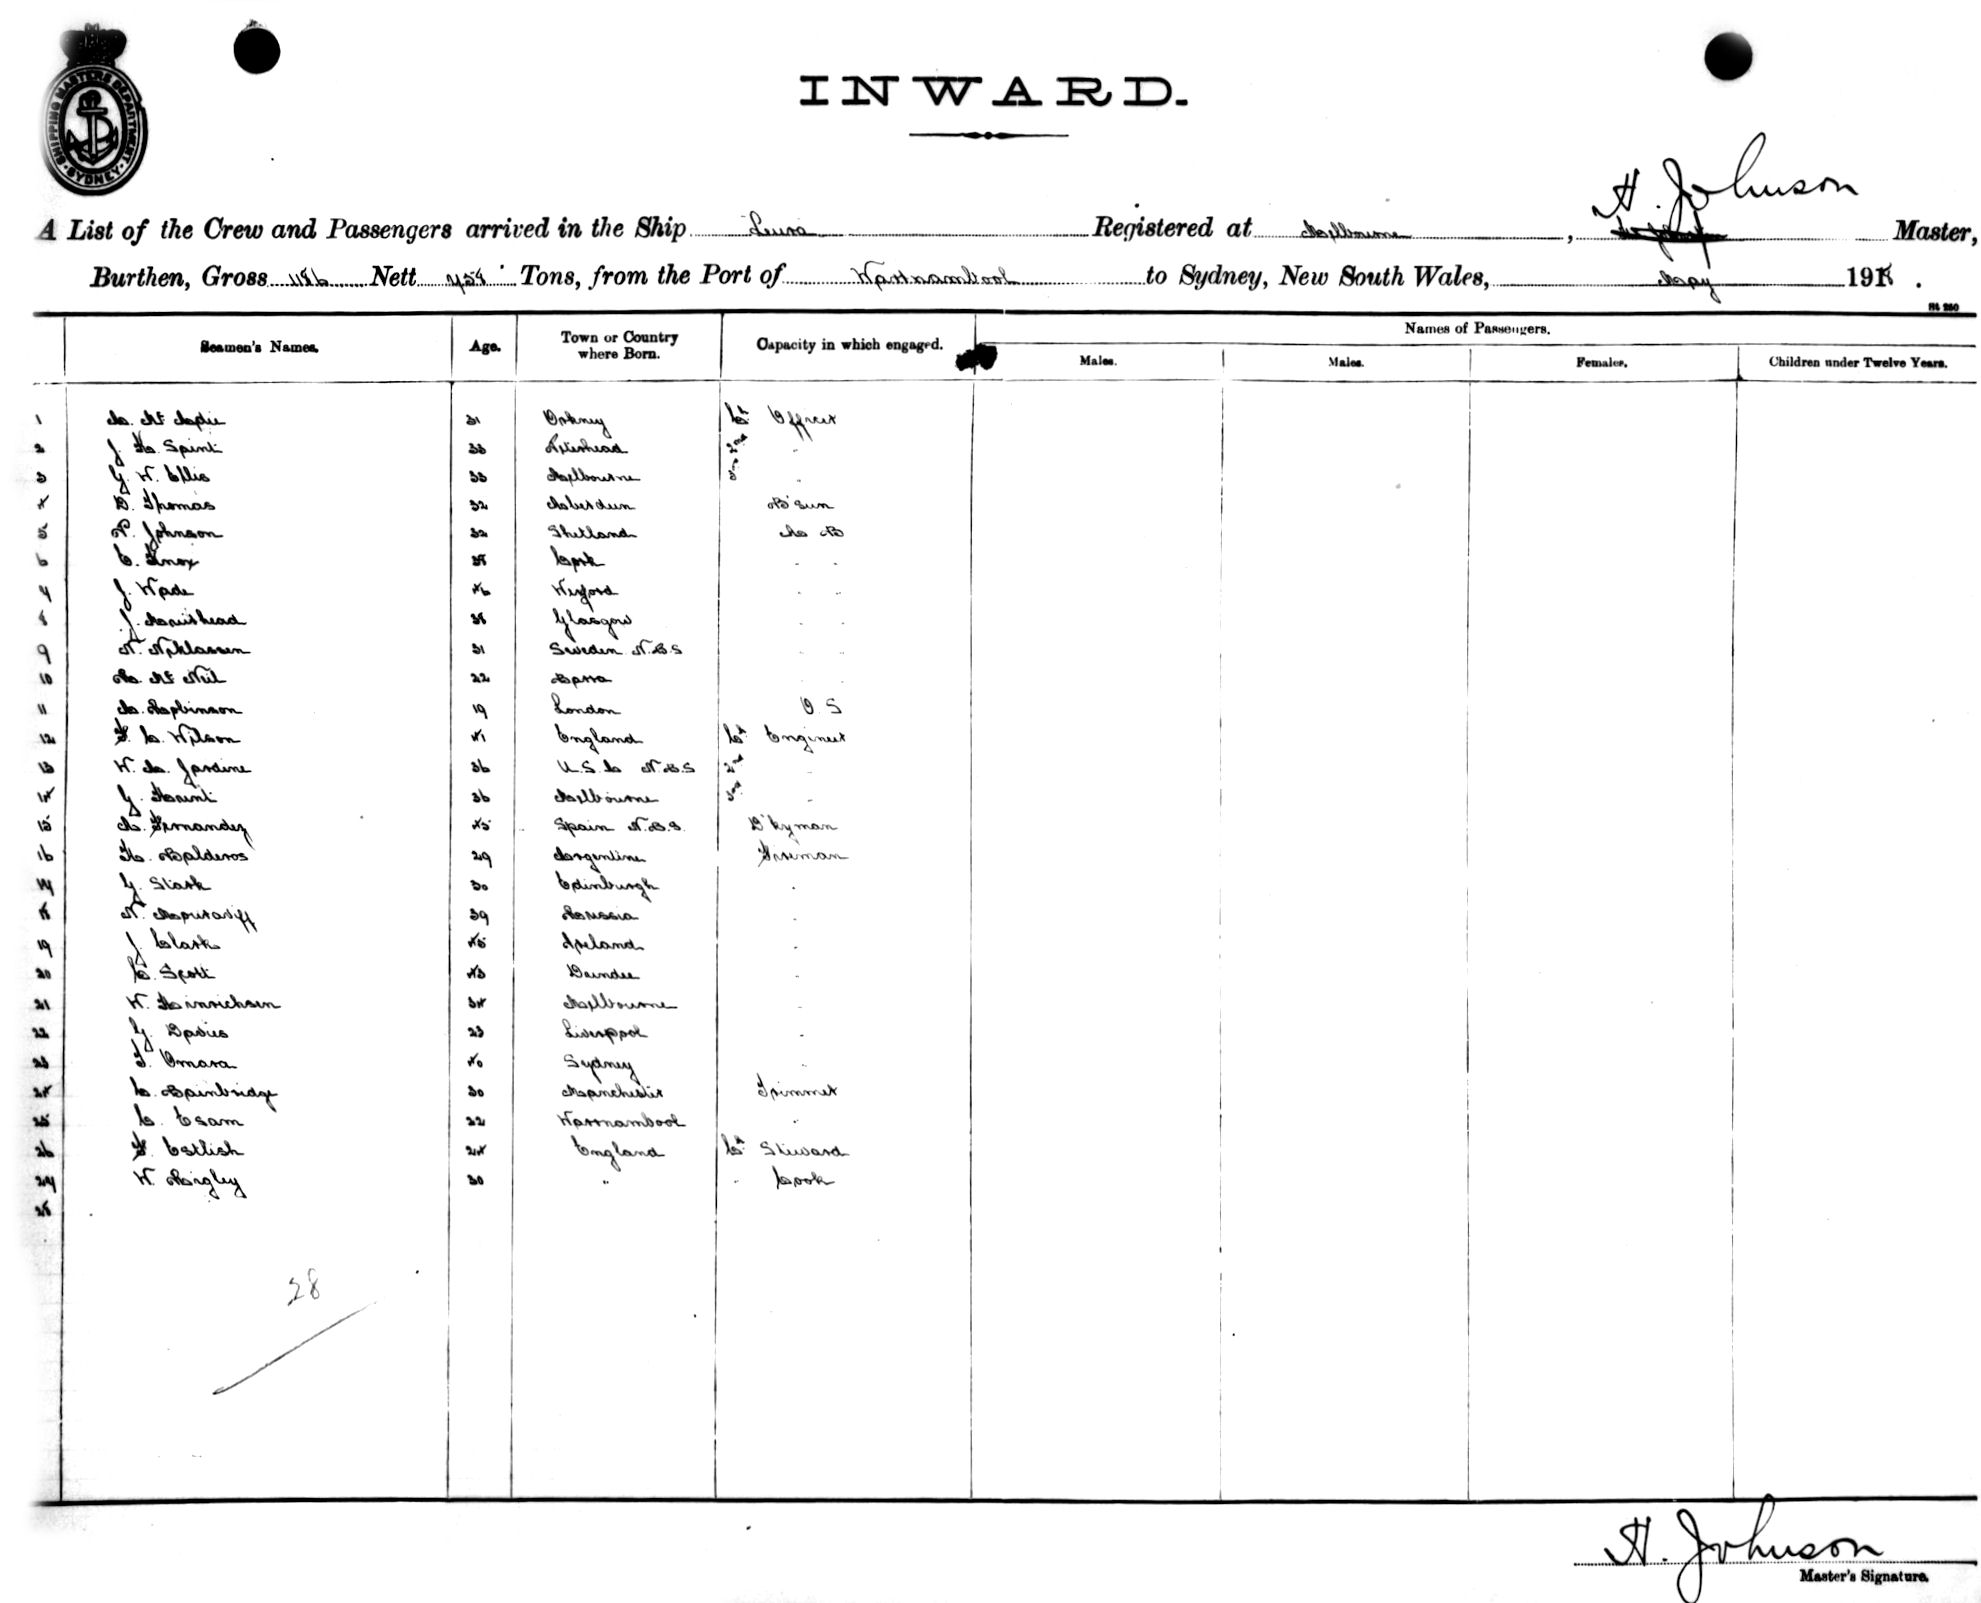 SHIPPING MASTERS DEPARTMENT SYDNEY
INWARD.
H. Johnson
A List of the Crew and Passengers arrived in the Ship Leura Registered at Melbourne, Master,
Burthen, Gross 1186 Nett Tons, from the Port of Warrnambool to Sydney, New South Wales, May 1918.
Seamen's Names. Age. Town or Country where Born. Capacity in which engaged. Names of Passengers.
Males. Males. Females. Children under Twelve Years.
1 31 Orkney Ch Officer
2 J. H. Spint 33 Peterhead 2nd "
3 G. W. Ellis 33 Melbourne 3rd "
4 D. Thomas 32 Aberdeen B'Sun
5 P. Johnson 32 Shetland A B
6 E. Knox 38 Cork " "
7 J. Wade 46 Wexford " "
8 J. Muirhead 38 Glasgow " "
9 N. Niklassen 31 Sweden N.B.S " "
10 Mc Neil 22 Barra " "
11 A. Robinson 19 London O S
12 F. C. Wilson 41 England Ch Engineer
13 W. A. Jardine 36 U.S.A N.B.S 2nd "
14 G. Hunt 36 Melbourne 3rd "
15 A. Fernandez 45 Spain N.B.S. D'kyman
16 H. Balderos 29 Argentine Fireman
17 G. Stark 30 Edinburgh "
18 39 Russia "
19 J. Clark 45 Ireland "
20 C. Scott 43 Dundee "
21 W. Hinrichsen 34 Melbourne "
22 G. Davies 23 Liverpool "
23 T. Omara 40 Sydney "
24 C. Bainbridge 30 Manchester Trimmer
25 C. Esam 22 Warrnambool "
26 F. 24 England Ch Steward
27 W. Rigley 30 " " Cook
28
28
H. Johnson
Master's Signature.